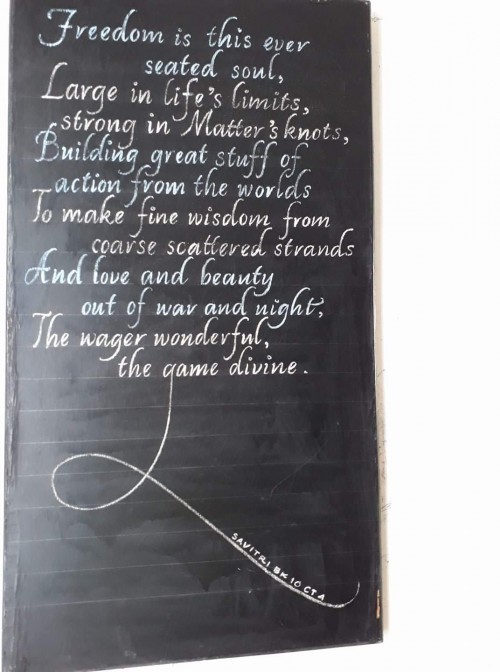 Freedom is this ever
seated soul,
Large in life's limits,
strong in Matter's knots,
Building great stuff of
action from the worlds
To make fine wisdom from
coarse scattered strands
And love and beauty
out of war and night,
The wager wonderful,
the game divine.
SAVITRI BK 10 CT 4